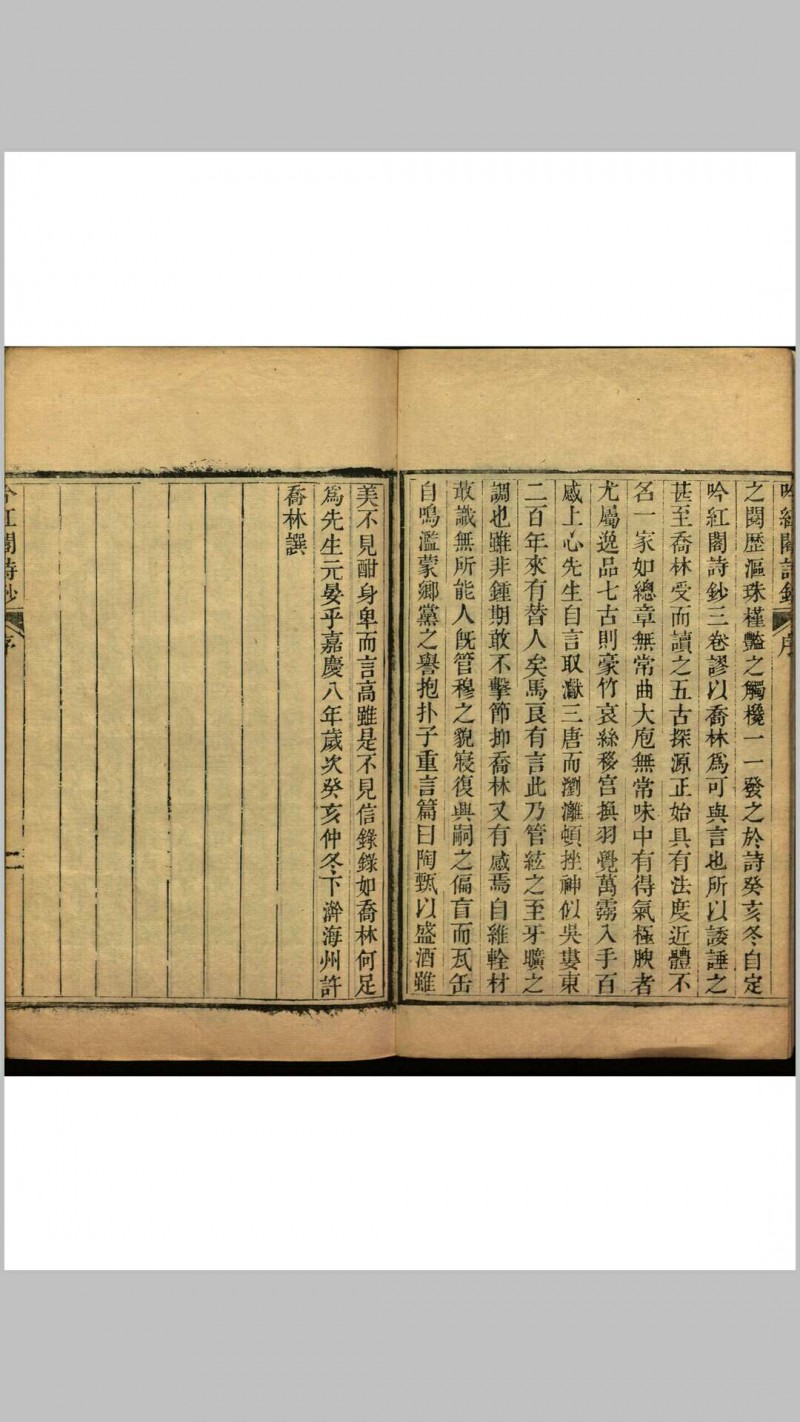 吟紅閣詩鈔 序
之閱歷漚珠槿豔之觸機一一發之於詩癸亥冬自定
吟紅閣詩鈔三卷謬以喬林爲可與言也所以諉諈之
甚至喬林受而讀之五古探源正始具有法度近體不
名一家如總章無常曲大庖無常味中有得氣極腴者
尤屬逸品七古則豪竹哀絲移宮換羽覺萬霧入手百
感上心先生自言取瀫三唐而瀏灕頓挫神似吳婁東
二百年來有替人矣馬良有言此乃管絃之至牙曠之
調也雖非鍾期敢不擊節抑喬林又有感焉自維輇材
敢識無所能人旣管穆之貌寢復興嗣之偏盲而瓦缶
自鳴濫蒙鄉黨之譽抱扑子重言篇曰陶甄以盛酒雖
美不見酣身卑而言高雖是不見信錄錄如喬林何足
爲先生元晏乎嘉慶八年歲次癸亥仲冬下澣海州許
喬林譔
吟紅閣詩鈔 序 二